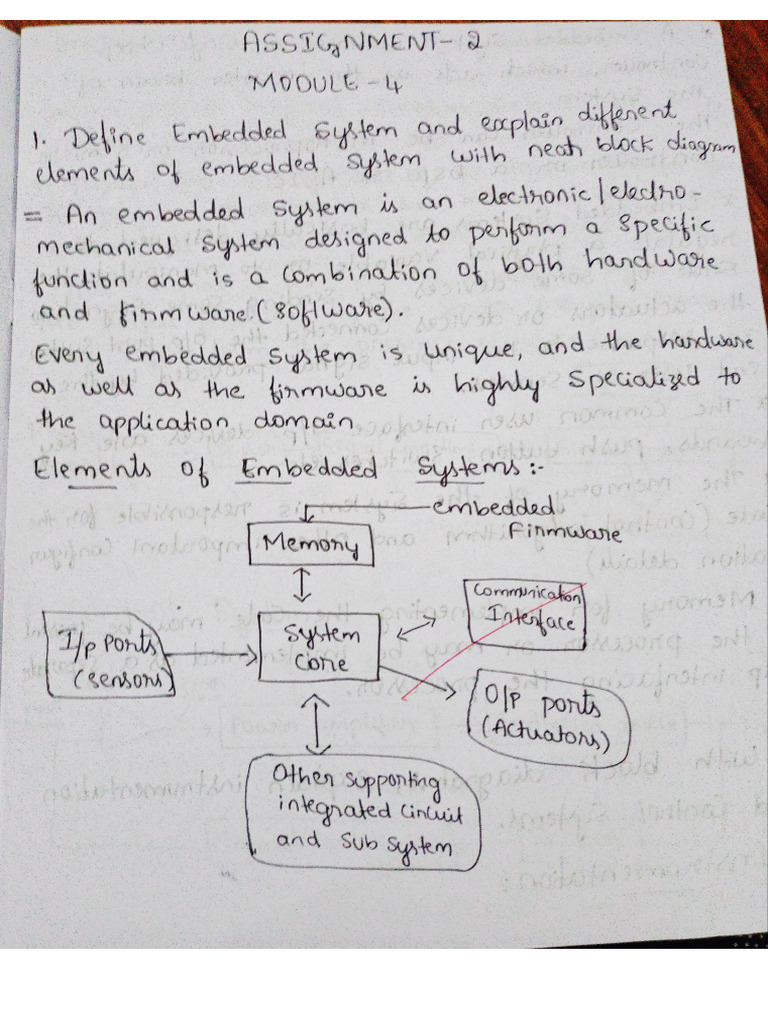 ASSIGNMENT- 2
MODULE - 4
1. Define Embedded System and explain different
elements of embedded system with neat block diagram
= An embedded system is an electronic/electro -
mechanical system designed to perform a specific
function and is a combination of both hardware
and firmware. (software).
Every embedded system is unique, and the hardware
as well as the firmware is highly specialized to
the application domain
Elements of Embedded Systems :-
embedded
firmware
Memory
Communication
Interface
I/p Ports
(sensors)
System
Core
O/p ports
(Actuators)
Other supporting
integrated circuit
and sub system